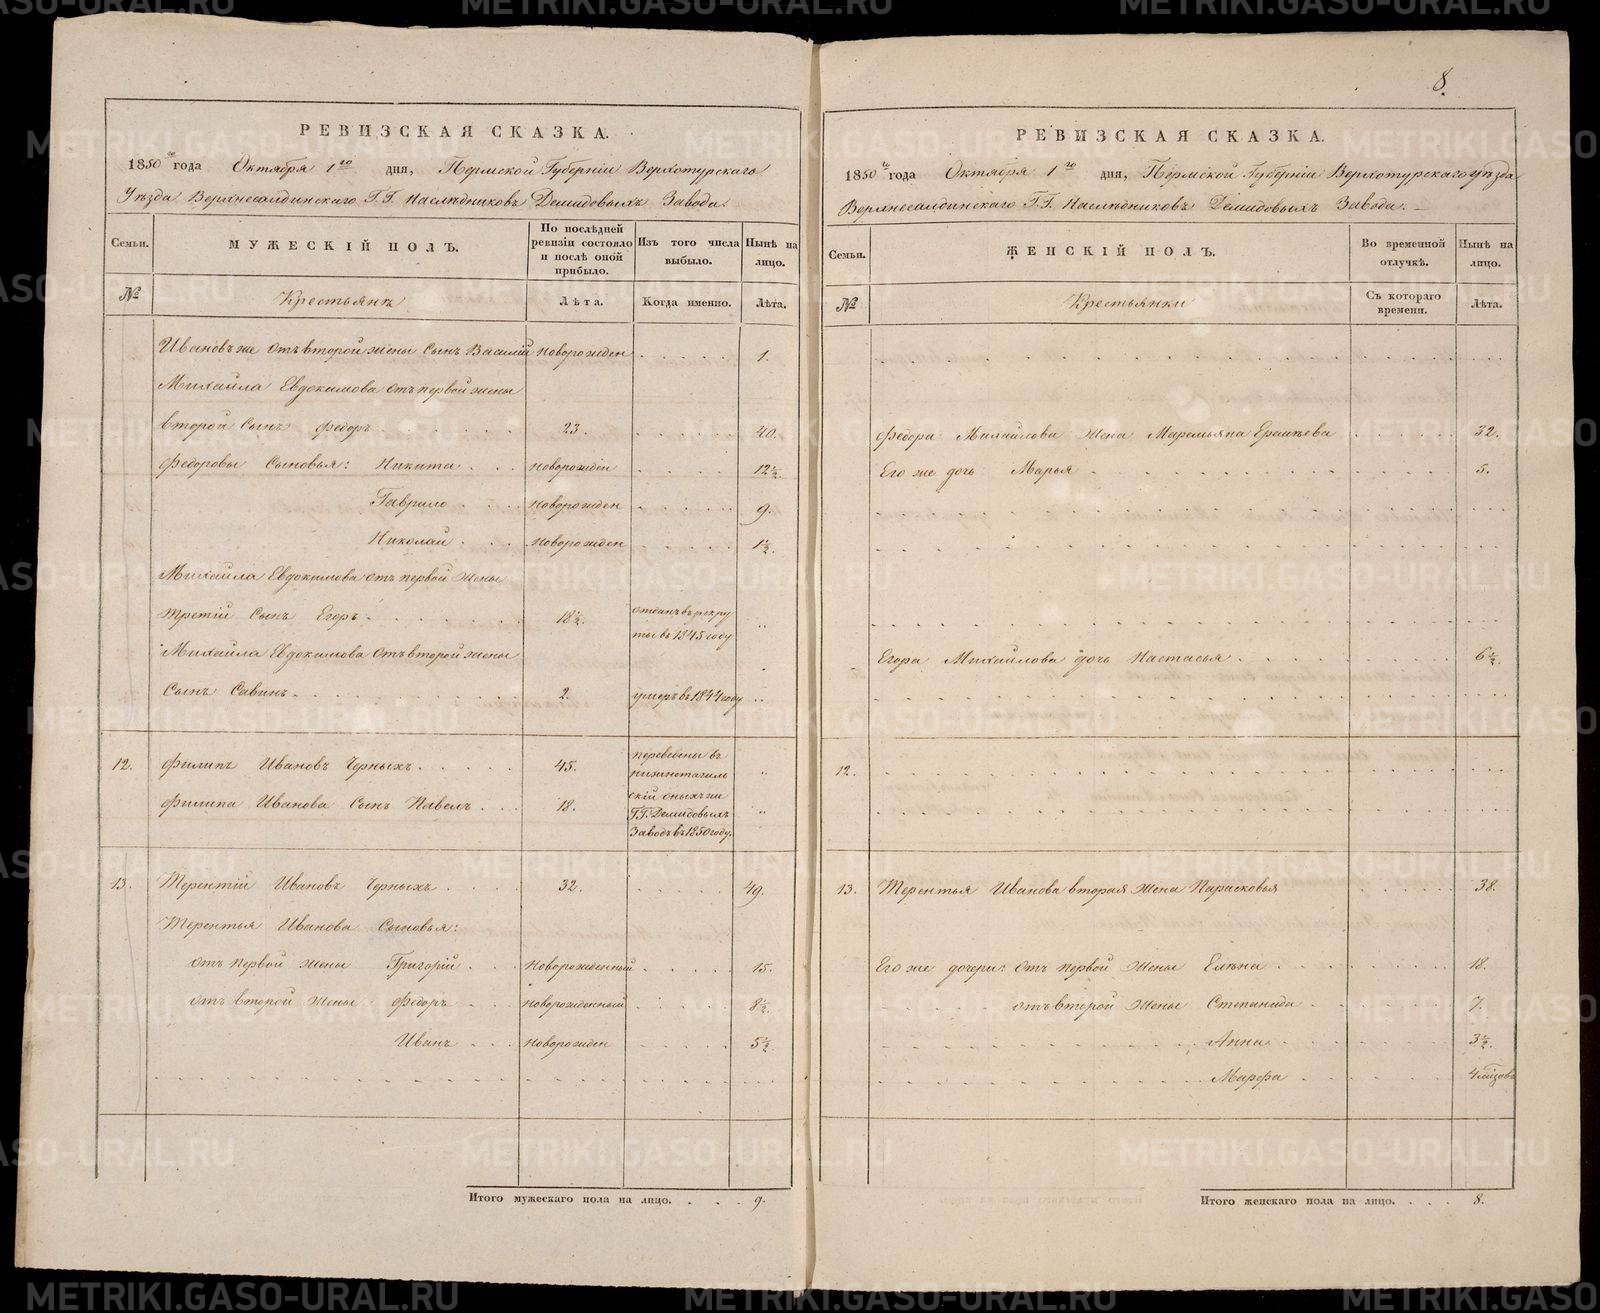 РЕВИЗСКАЯ СКАЗКА.
1850го года Октября 1го дня, Пермской Губернiи Верхотурскаго
Уѣзда Верхнесалдинскаго Г.Г. Наслѣдниковъ Демидовыхъ Завода.
Семьи.
МУЖЕСКIЙ ПОЛЪ.
По послѣдней ревизiи состояло и послѣ оной прибыло.
Изъ того числа выбыло.
Нынѣ на лицо.
№
Крестьянъ
Лѣта.
Когда именно.
Лѣта.
Ивановъ же отъ второй жены сынъ Василiй новорожден 1.
Михайла Евдокимова отъ первой жены
второй сынъ Федоръ 23. 40.
Федоровы сыновья: Никита новорожден 12½.
Гаврило новорожден 9.
Николай новорожден 1½.
Михайла Евдокимова отъ первой жены
третiй сынъ Егоръ 18½. отданъ въ рекру
ты въ 1845 году „
Михайла Евдокимова отъ второй жены
сынъ Савинъ 2. умеръ въ 1844 году „
12. Филипъ Ивановъ Черныхъ 45. переведены въ
нижнетагиль „
Филипа Иванова сынъ Павелъ 18. скiй оныхъ же
Г.Г. Демидовыхъ „
Заводъ въ 1850 году.
13. Терентiй Ивановъ Черныхъ 32. 49.
Терентья Иванова сыновья:
отъ первой жены Григорiй новорожденный 15.
отъ второй жены Федоръ новорожденный 8½.
Иванъ новорожден 5½.
Итого мужескаго пола на лицо. 9.
8.
РЕВИЗСКАЯ СКАЗКА.
1850го года Октября 1го дня, Пермской Губернiи Верхотурскаго уѣзда
Верхнесалдинскаго Г.Г. Наслѣдниковъ Демидовыхъ Завода.
Семьи.
ЖЕНСКIЙ ПОЛЪ.
Во временной отлучкѣ.
Нынѣ на лицо.
№
Крестьянки
Съ котораго времени.
Лѣта.
Федора Михайлова жена Маремьяна Ермилева 32.
Его же дочь Марья 5.
Егора Михайлова дочь Настасья 6½.
12.
13. Терентья Иванова вторая жена Парасковья 38.
Его же дочери: отъ первой жены Елѣна 18.
отъ второй жены Степанида 7.
Анна 3½.
Марфа 4 мѣсяцовъ
Итого женскаго пола на лицо. 8.
METRIKI.GASO-URAL.RU